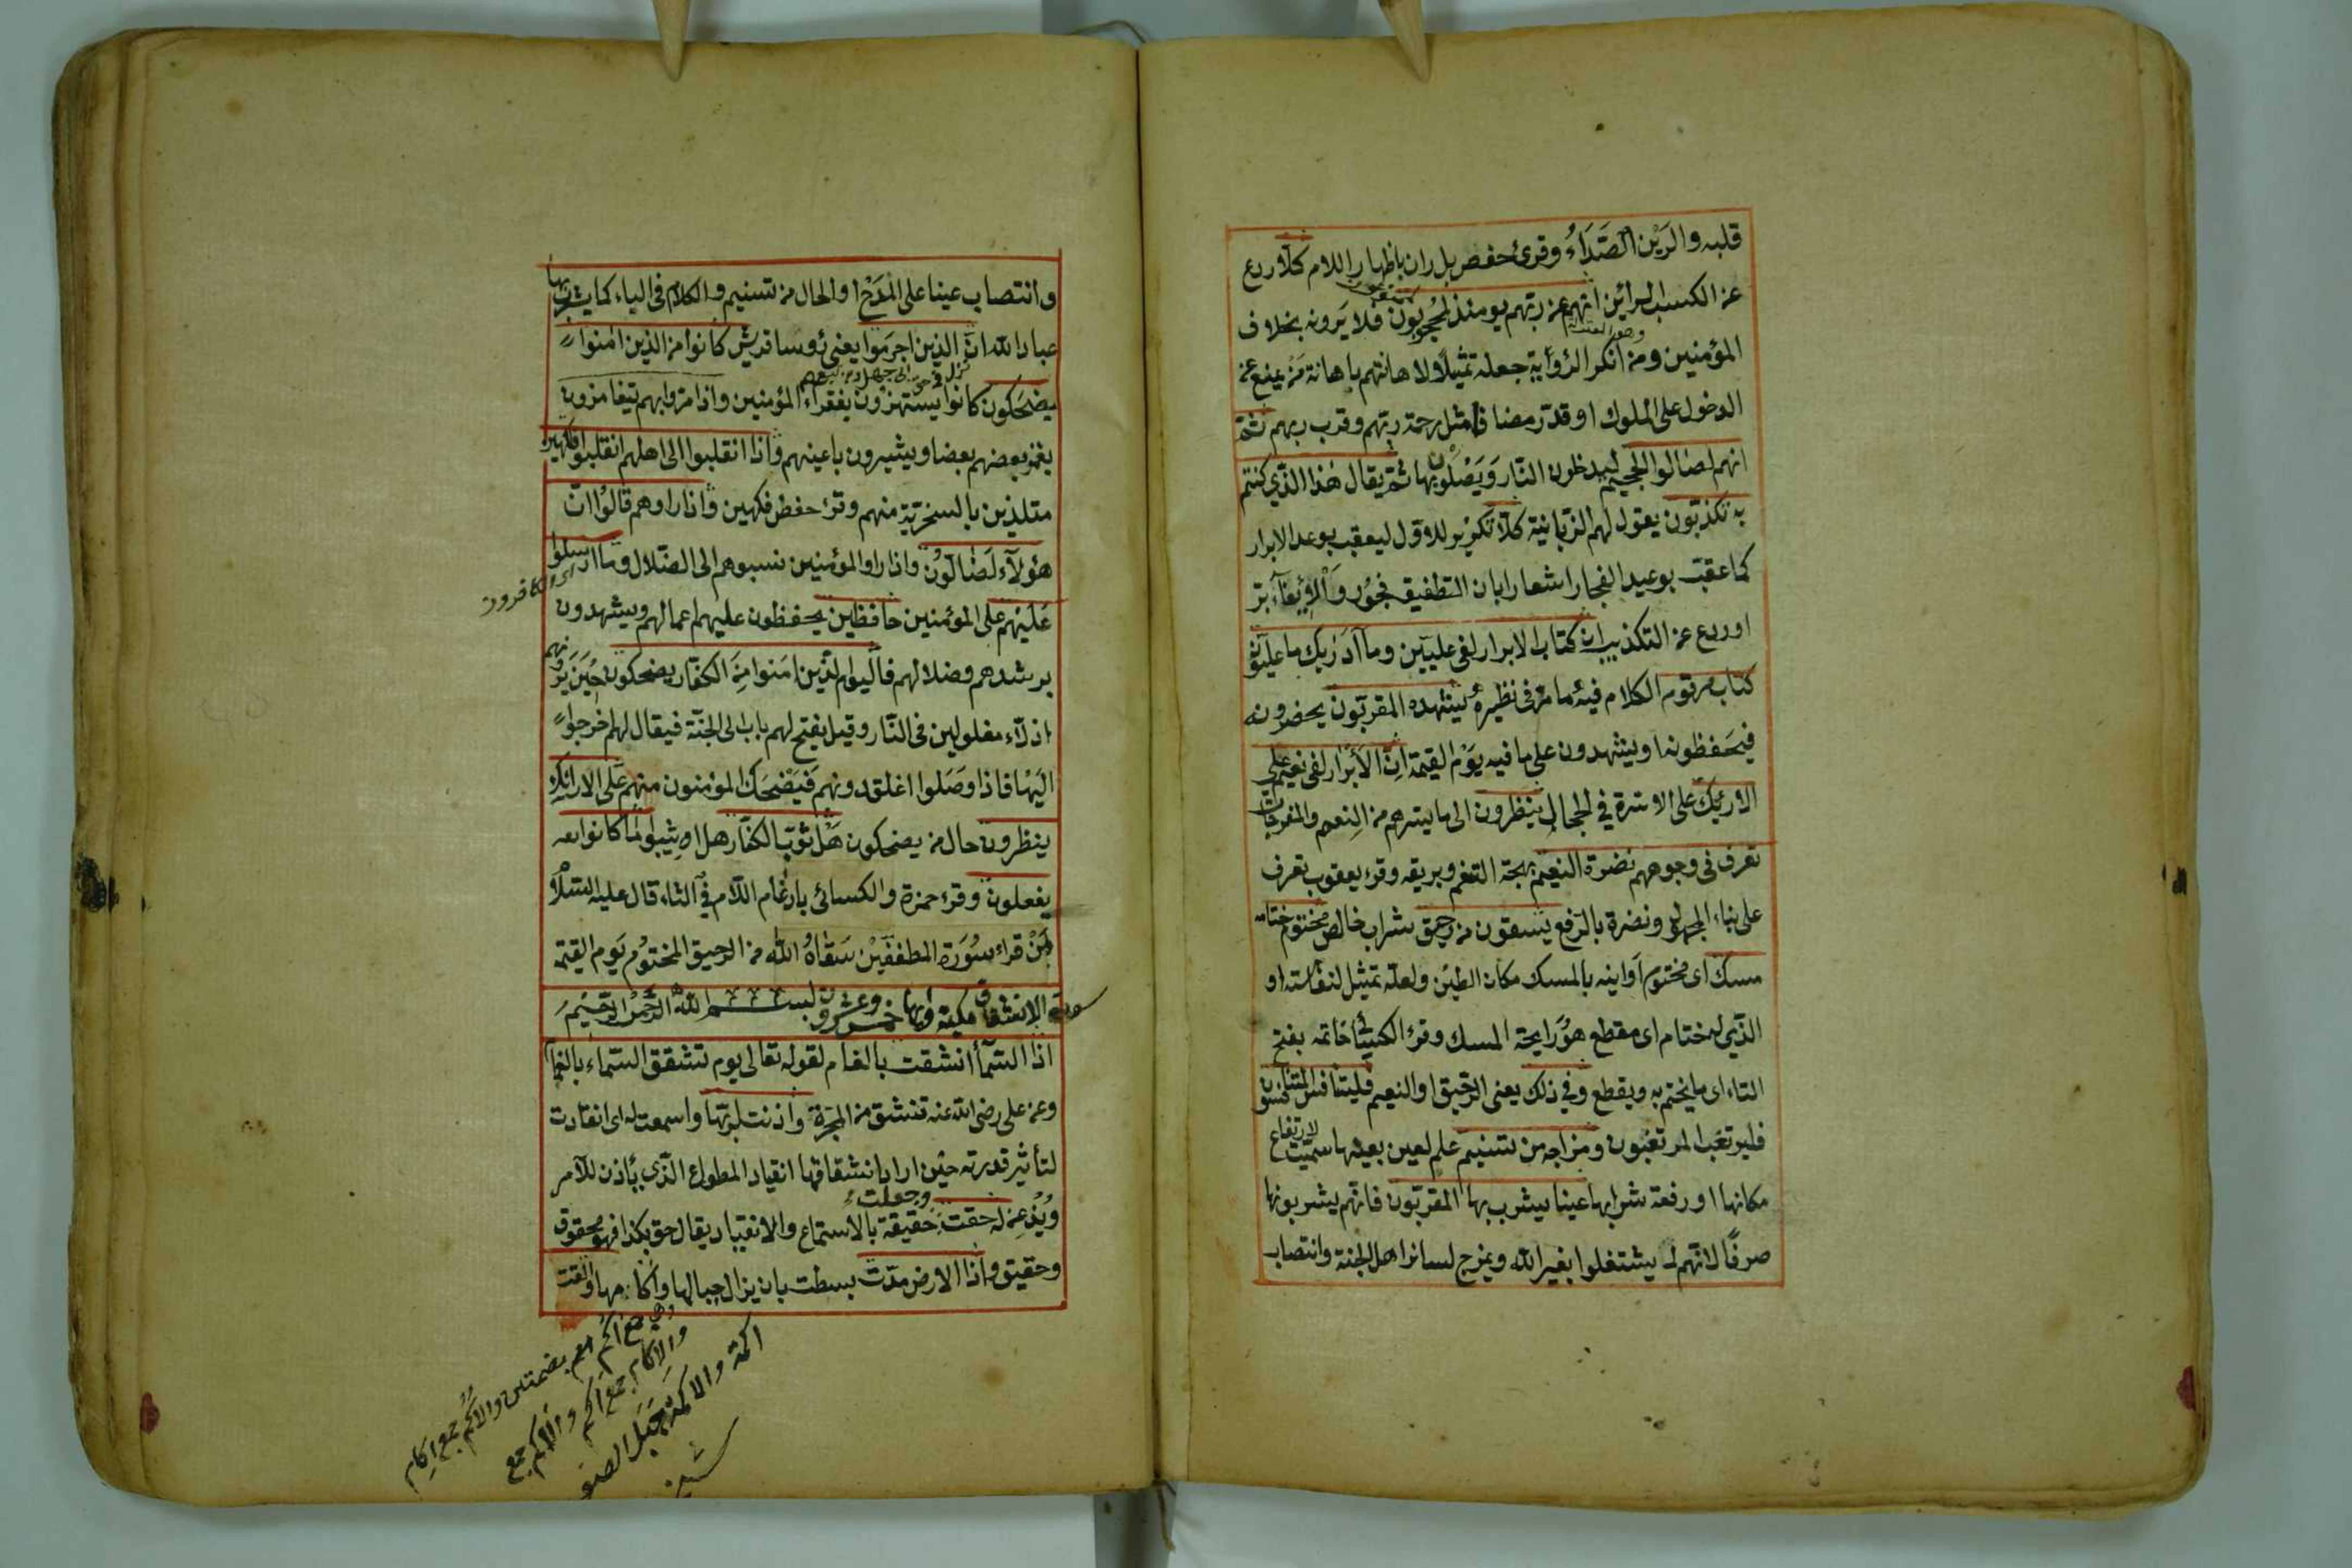 قلبه والرَيْن الصَّدَاءُ وقرئ حفص بل ران باظهار اللام كلّا ردع
عن الكسب الرائن انّهم عن ربّهم يومئذ لمحجوبُون فلا يَرونه بخلاف
المؤمنين ومن انكر الرؤاية جعله تمثيلًا لاهانتهم باهانة مَنْ يمنع عن
الدخول على الملوك او قدّر مضافا مثل رحمة ربّهم وقرب ربهم ثمّ
انهم لصالوا الجحيم ليدخلون النّار وَيَصْلَوْن بها ثمّ يقال هٰذا الذّي كنتم
به تكذبّون يقول لهم الزّبانية كلّا تكرير للاوّل ليعقب بوعد الابرار
كما عقب بوعيد الفجار اشعارا بان التطفيف فجُور وَالْايفآء برّ
او ردع عن التكذيب ان كتاب الابرار لفى عليّين ومآ ادَرٰيك ما عليّون
كتاب مرقوم الكلام فيه ما مرّ فى نظيره يشهده المقربّون يحضرونه
فيحَفظونه او يشهدون على ما فيه يَوْم القيمة انّ الأَبْرار لفى نعيم على
الارئك على الاسّرة في الحجال ينظرون الى ما يسّرهم من النِعم والمفرجات
تعرف فى وجوههم نضرة النعيم بهجة التنعّم وبريقه وقرء يعقوب تعرف
على بناء المجهول ونضرة بالرّفع يسقون من رحيق شراب خالص مختوم ختامه
مسك اى مختوم اَوانيه بالمسك مكان الطين ولعلّه تمثيل لنفاسته او
الذّي له ختام اى مقطع هوَ رايحة المسك وقرء الكسائى خاتمه بفتح
التاء اى ما يختم به ويقطع وفي ذلك يعنى الرّحيق او النعيم فليتنافس المتنافسون
فليرتغب المرتغبون ومزاجه من تسنيم علم لعين بعينها سمّيت لارتفاع
مكانها او رفعة شرابها عينا يشرب بها المقربّون فانّهم يشربونها
صرفًا لانّهم لم يشتغلوا بغير الله ويمزج لسائر اهل الجنة وانتصاب
وانتصاب عينا على المَدْح او الحال من تسنيم والكلام فى الباء كما يشرب بها
عباد الله انّ الذين اجرمَوا يعنى رؤوسا قريش كانوا من الذين امنوا
يضحَكون كانوا يستهزؤن بفقراء المؤمنين واذا مرّوا بهم يتغامزون
يغمز بعضهم بعضا ويشيرون باعينهم واذا انقلبوا الى اهلهم انقلبوا فكهين
متلذين بالسخريّة منهم وقرء حفص فكهين واذا راوهم قالوُا انّ
هٰؤلآء لَضٰالّوُن واذا راوا المؤمنين نسبوهم الى الضّلال وما ارسلوا
اى الكافرون
عَليْهم على المؤمنين حافظين يحفظون عليهم اعمالهم ويشهدون
برشدهم وضلالهم فاليوم الذّين امَنوا مِنَ الكفّار يضحكون حيَن يَرَونهم
اذلّآء مغلولين فى النّار وقيل يفتح لهم باب الى الجنّة فيقال لهم اخرجوا
اليَهْا فاذا وصَلوا اغلق دونهم فَيضْحَك المؤمنون منهم على الارائك
ينظرون حال من يضحكون هَلْ ثوّب الكفّار هل اثيبوا ما كانوا
يفعلون وقرء حمزة والكسائى بادغام اللّام فى الثاء قال عليه السّلام
مَنْ قراء سُورَة المطففّيْن سَقٰاهُ اللّه من الرحيق المختوُم يَوم القيمة
سورة الانشقاق مكية وايها خمس وعشرون بسم اللّه الرّحمٰن الرّحيم
اذا السّمآء انشقت بالغمام لقوله تعالى يوم تشقق السّماء بالغمام
وعن على رضى الله عنه تنشق من المجرّة واذنت لربّها واسمعت له اى انقادت
لتأثير قدرته حيْن اراد انشقاقها انقياد المطواع الذّى يأذن للآمر
ويُذعِن له حقت وجعلت حقيقة بالاستماع والانقياد يقال حق بكذا فهو محقوق
وحقيق واذا الارض مدّت بسطت بان يزال جبالها واكامها والقت
بضمتين والاُكُم جمع اِكام
والاِكام جمع اَكَم والاَكَم جمع
اكمة والاكمة جَبَل الصغير